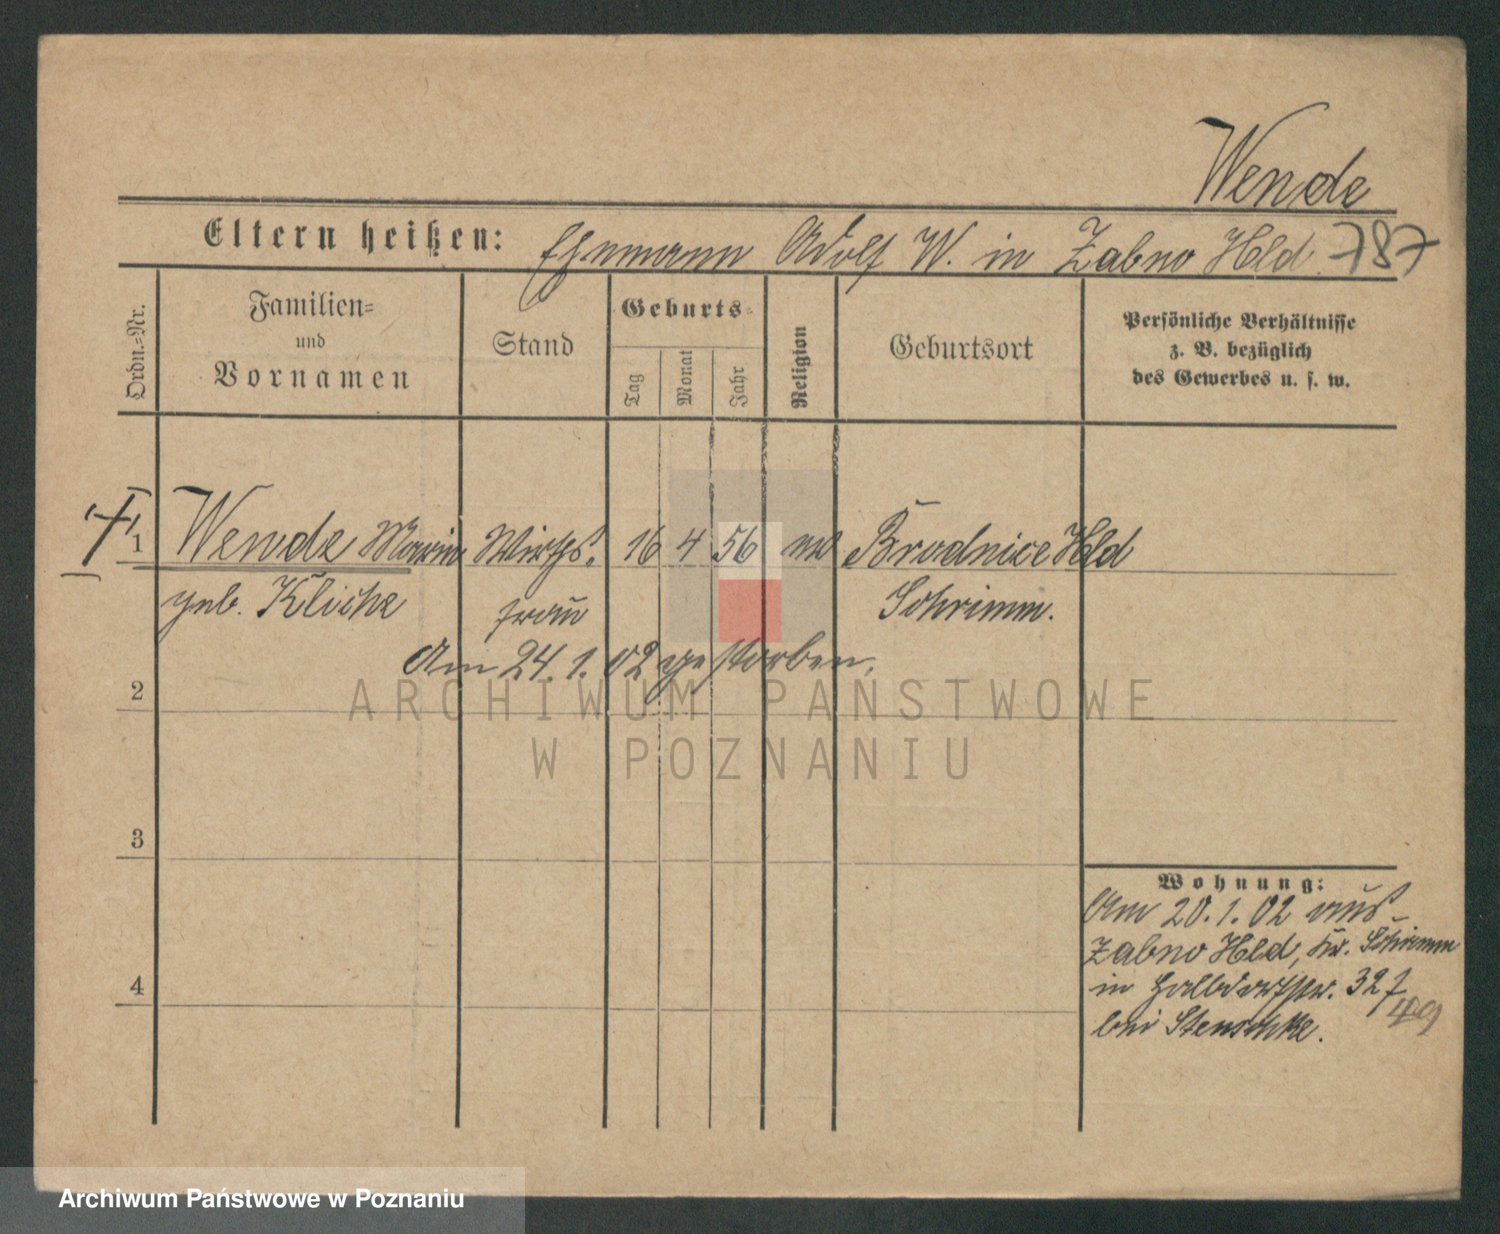 Wende
Eltern heißen: Ehemann Adolf W. in Zabno Hld. 787
Ordn.=Nr.
Familien=
und
Vornamen
Stand
Geburts=
Tag
Monat
Jahr
Religion
Geburtsort
Persönliche Verhältnisse
z. B. bezüglich
des Gewerbes u. s. w.
1 Wende Maria Wirths. 16 4 56 ev Brodnice Hld
geb. Kliche frau Schrimm.
Am 24.1.02 gestorben.
2
3
4
Wohnung:
Am 20.1.02 aus
Zabno Hld, Kr. Schrimm
in Halbdorfstr. 32
bei Stenschke.
ARCHIWUM PAŃSTWOWE
W POZNANIU
Archiwum Państwowe w Poznaniu